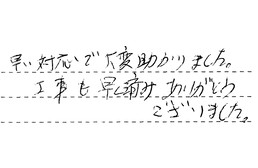 早い対応で大変助かりました。
工事も早く済み ありがとう
ございました。